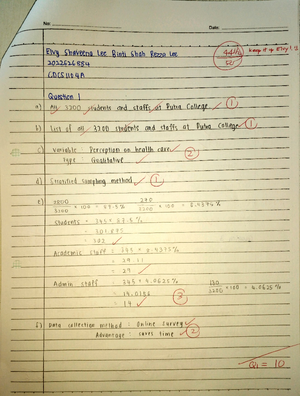 No:
Date:
Elvy Shaveena Lee Binti Shah Rezza Lee
2022626884
CDCS1104A
Question 1
a) All 3200 students and staffs at Putra College. ①
b) List of all 3200 students and staffs at Putra College. ①
c) Variable : Perception on health care
Type : Qualitative ②
d) Stratified sampling method ①
e)
3200 × 100 = 8.4375%
Students = 345 × 87.5%
= 301.875
= 302
Academic staff : 345 × 8.4375%
= 29.11
= 29
Admin staff : 345 × 4.0625%
= 14.0156
= 14
130
3200 × 100 = 4.0625%
f) Data collection method : Online survey
Advantage : saves time ②
Q1 = 10